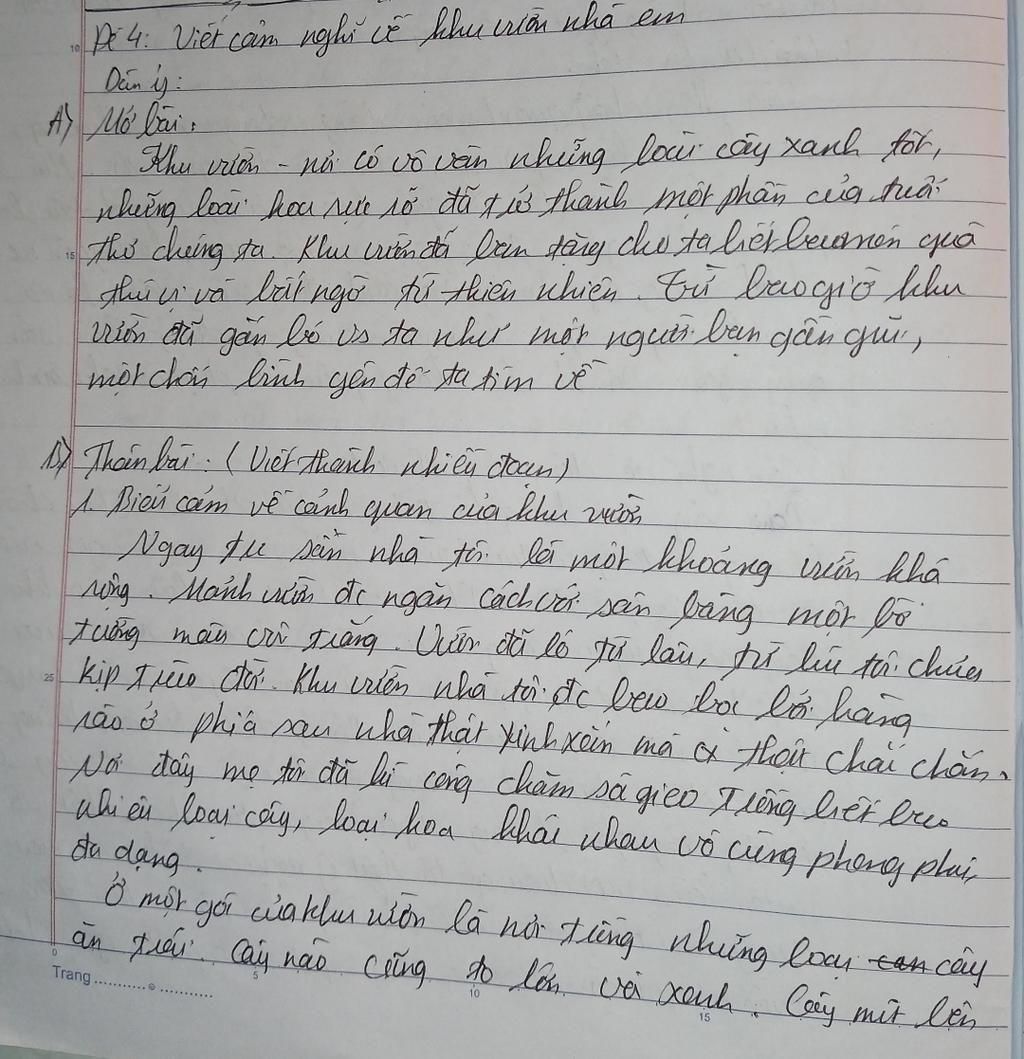 10 Đề 4: Viết cảm nghĩ về khu vườn nhà em
Dàn ý:
A) Mở bài:
Khu vườn - nơi có vô vàn những loài cây xanh tốt,
những loài hoa rực rỡ đã trở thành một phần của tuổi
15 thơ chúng ta. Khu vườn đã ban tặng cho ta biết bao món quà
thú vị và bất ngờ từ thiên nhiên. Từ bao giờ khu
vườn đã gắn bó vs ta như một người bạn gần gũi,
một chốn bình yên để ta tìm về
B) Thân bài: (Viết thành nhiều đoạn)
1. Biểu cảm về cảnh quan của khu vườn
Ngay trc sân nhà tôi là một khoảng vườn khá
rộng. Mảnh vườn đc ngăn cách với sân bằng một bờ
tường màu vôi trắng. Vườn đã có từ lâu, từ lúc tôi chưa
25 kịp trào đời. Khu vườn nhà tôi đc bao bọc bởi hàng
rào ở phía sau nhà thật xinh xắn mà thật chắc chắn.
Nơi đây mẹ tôi đã kì công chăm sóc gieo trồng biết bao
nhiêu loại cây, loại hoa khác nhau vô cùng phong phú,
đa dạng.
Ở một góc của khu vườn là nơi trồng những loại cây
ăn trái. Cây nào cũng to lớn và xanh. Cây mít bên
Trang
0 5 10 15